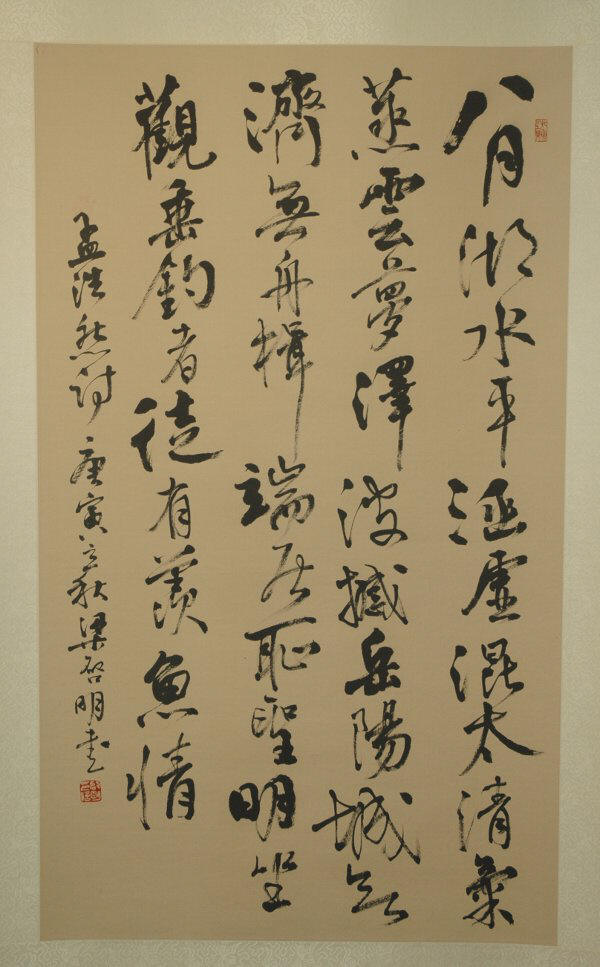 八月湖水平涵虛混太清氣
蒸雲夢澤波撼岳陽城欲
濟無舟楫端居恥聖明坐
觀垂釣者徒有羨魚情
孟浩然詩 庚寅立秋梁启明書